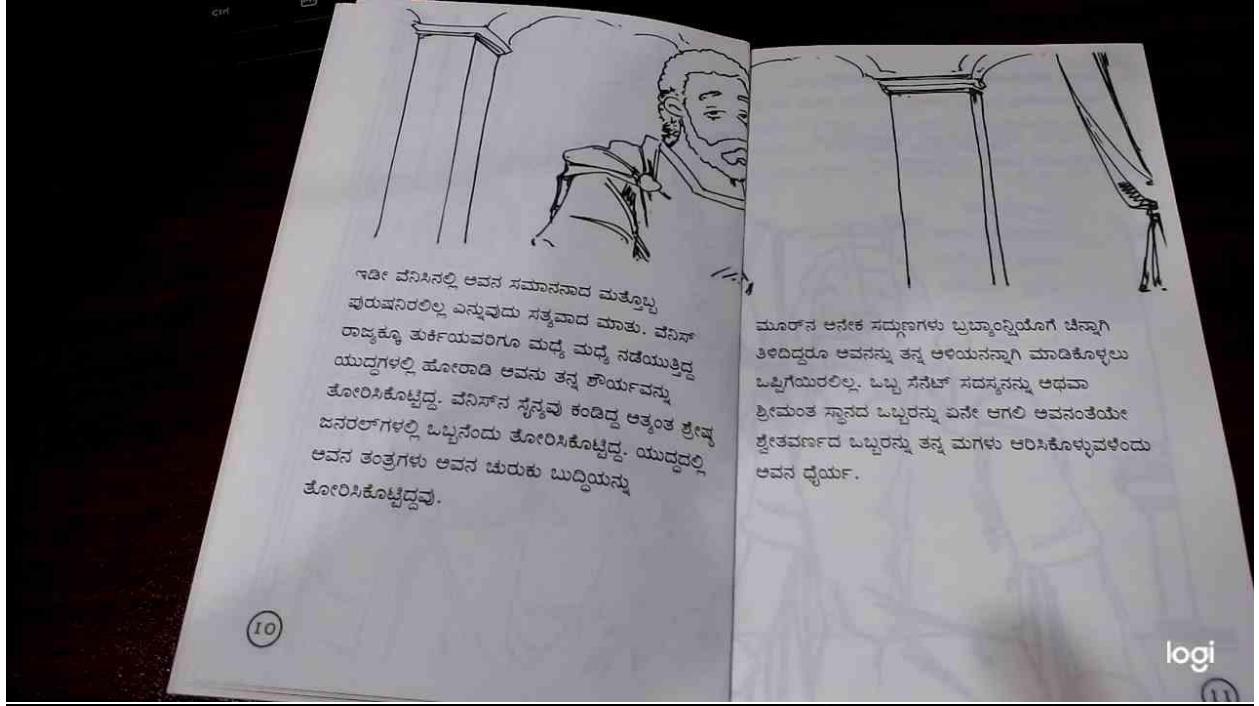 ಇಡೀ ವೆನಿಸಿನಲ್ಲಿ ಅವನ ಸಮಾನನಾದ ಮತ್ತೊಬ್ಬ
ಪುರುಷನಿರಲಿಲ್ಲ ಎನ್ನುವುದು ಸತ್ಯವಾದ ಮಾತು. ವೆನಿಸ್
ರಾಜ್ಯಕ್ಕೂ ತುರ್ಕಿಯವರಿಗೂ ಮಧ್ಯೆ ಮಧ್ಯೆ ನಡೆಯುತ್ತಿದ್ದ
ಯುದ್ಧಗಳಲ್ಲಿ ಹೋರಾಡಿ ಅವನು ತನ್ನ ಶೌರ್ಯವನ್ನು
ತೋರಿಸಿಕೊಟ್ಟಿದ್ದ. ವೆನಿಸ್‌ನ ಸೈನ್ಯವು ಕಂಡಿದ್ದ ಅತ್ಯಂತ ಶ್ರೇಷ್ಠ
ಜನರಲ್‌ಗಳಲ್ಲಿ ಒಬ್ಬನೆಂದು ತೋರಿಸಿಕೊಟ್ಟಿದ್ದ. ಯುದ್ಧದಲ್ಲಿ
ಅವನ ತಂತ್ರಗಳು ಅವನ ಚುರುಕು ಬುದ್ಧಿಯನ್ನು
ತೋರಿಸಿಕೊಟ್ಟಿದ್ದವು.
10
ಮೂರ್‌ನ ಅನೇಕ ಸದ್ಗುಣಗಳು ಬ್ರಬ್ಯಾಂನ್ಷಿಯೊಗೆ ಚೆನ್ನಾಗಿ
ತಿಳಿದಿದ್ದರೂ ಅವನನ್ನು ತನ್ನ ಅಳಿಯನನ್ನಾಗಿ ಮಾಡಿಕೊಳ್ಳಲು
ಒಪ್ಪಿಗೆಯಿರಲಿಲ್ಲ. ಒಬ್ಬ ಸೆನೆಟ್ ಸದಸ್ಯನನ್ನು ಅಥವಾ
ಶ್ರೀಮಂತ ಸ್ಥಾನದ ಒಬ್ಬರನ್ನು ಏನೇ ಆಗಲಿ ಅವನಂತೆಯೇ
ಶ್ವೇತವರ್ಣದ ಒಬ್ಬರನ್ನು ತನ್ನ ಮಗಳು ಆರಿಸಿಕೊಳ್ಳುವಳೆಂದು
ಅವನ ಧೈರ್ಯ.
11
logi
Ctrl